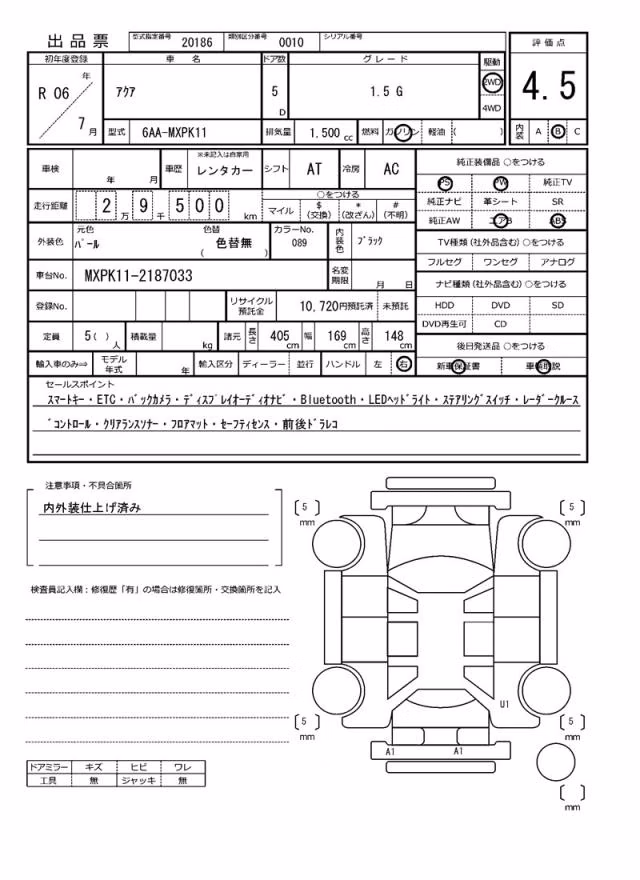 出品票 型式指定番号 20186 類別区分番号 0010 シリアル番号
評価点
4.5
内装 A B C
初年度登録 車名 ドア数 グレード 駆動
R 06 年 7 月 アクア 5 D 1.5 G 2WD 4WD
型式 6AA-MXPK11 排気量 1.500 cc 燃料 ガソリン 軽油 ( )
車検 年 月 車歴 ※未記入は自家用 レンタカー シフト AT 冷房 AC
走行距離 2 万 9 千 5 0 0 km ○をつける
マイル $ (交換) * (改ざん) # (不明)
外装色 元色 パール 色替 ( 色替無 ) カラーNo. 089 内装色 ブラック
車台No. MXPK11-2187033 名変期限 月 日
登録No. リサイクル預託金 10,720円預託済 未預託
定員 5( ) 人 積載量 kg 諸元 長さ 405 cm 幅 169 cm 高さ 148 cm
輸入車のみ⇨ モデル年式 年 輸入区分 ディーラー ・ 並行 ハンドル 左 右
純正装備品 ○をつける
PS PW 純正TV
純正ナビ 革シート SR
純正AW エアB ABS
TV種類 (社外品含む) ○をつける
フルセグ ワンセグ アナログ
ナビ種類 (社外品含む) ○をつける
HDD DVD SD
DVD再生可 CD
後日発送品 ○をつける
新車保証書 車輌取説
セールスポイント
スマートキー・ETC・バックカメラ・ディスプレイオーディオナビ・Bluetooth・LEDヘッドライト・ステアリングスイッチ・レーダークルーズ
コントロール・クリアランスソナー・フロアマット・セーフティセンス・前後ドラレコ
注意事項・不具合箇所
内外装仕上げ済み
検査員記入欄：修復歴「有」の場合は修復箇所・交換箇所を記入
ドアミラー キズ ヒビ ワレ
工具 無 ジャッキ 無
( 5 ) mm
( 5 ) mm
U1
( 5 ) mm
( 5 ) mm
A1 A1
( ) mm